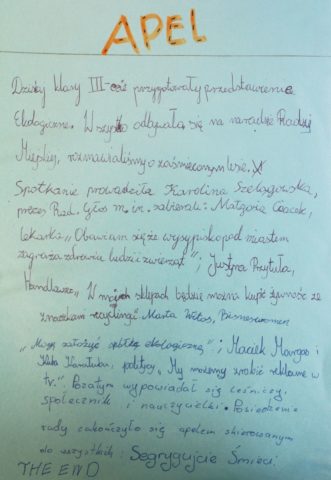 APEL
Dzisiaj klasy III-cie przygotowały przedstawienie
Ekologiczne. Wszystko odbywało się na naradzie Radziej
Miejskiej, rozmawialiśmy o zaśmieconym lesie.
Spotkanie prowadziła Karolina Szelągowska,
prezes Rad. Głos m.in. zabierali: Małgosia Czacek,
lekarka „Obawiam się że wysypisko pod miastem
zagraża zdrowiu ludzi i zwierząt"; Justyna Przytuła,
Handlowiec „W moich sklepach będzie można kupić żywność ze
znaczkiem recyclingu". Marta Witos, Bisneswomen
„Mogę założyć spółkę ekologiczną"; Maciek
i Kuba politycy „My możemy zrobić reklamę w
tv." Pozatym wypowiadał się leśniczy,
społecznik i nauczycielki. Posiedzenie
rady zakończyło się apelem skierowanym
do wszystkich: Segregujcie Śmieci
THE END